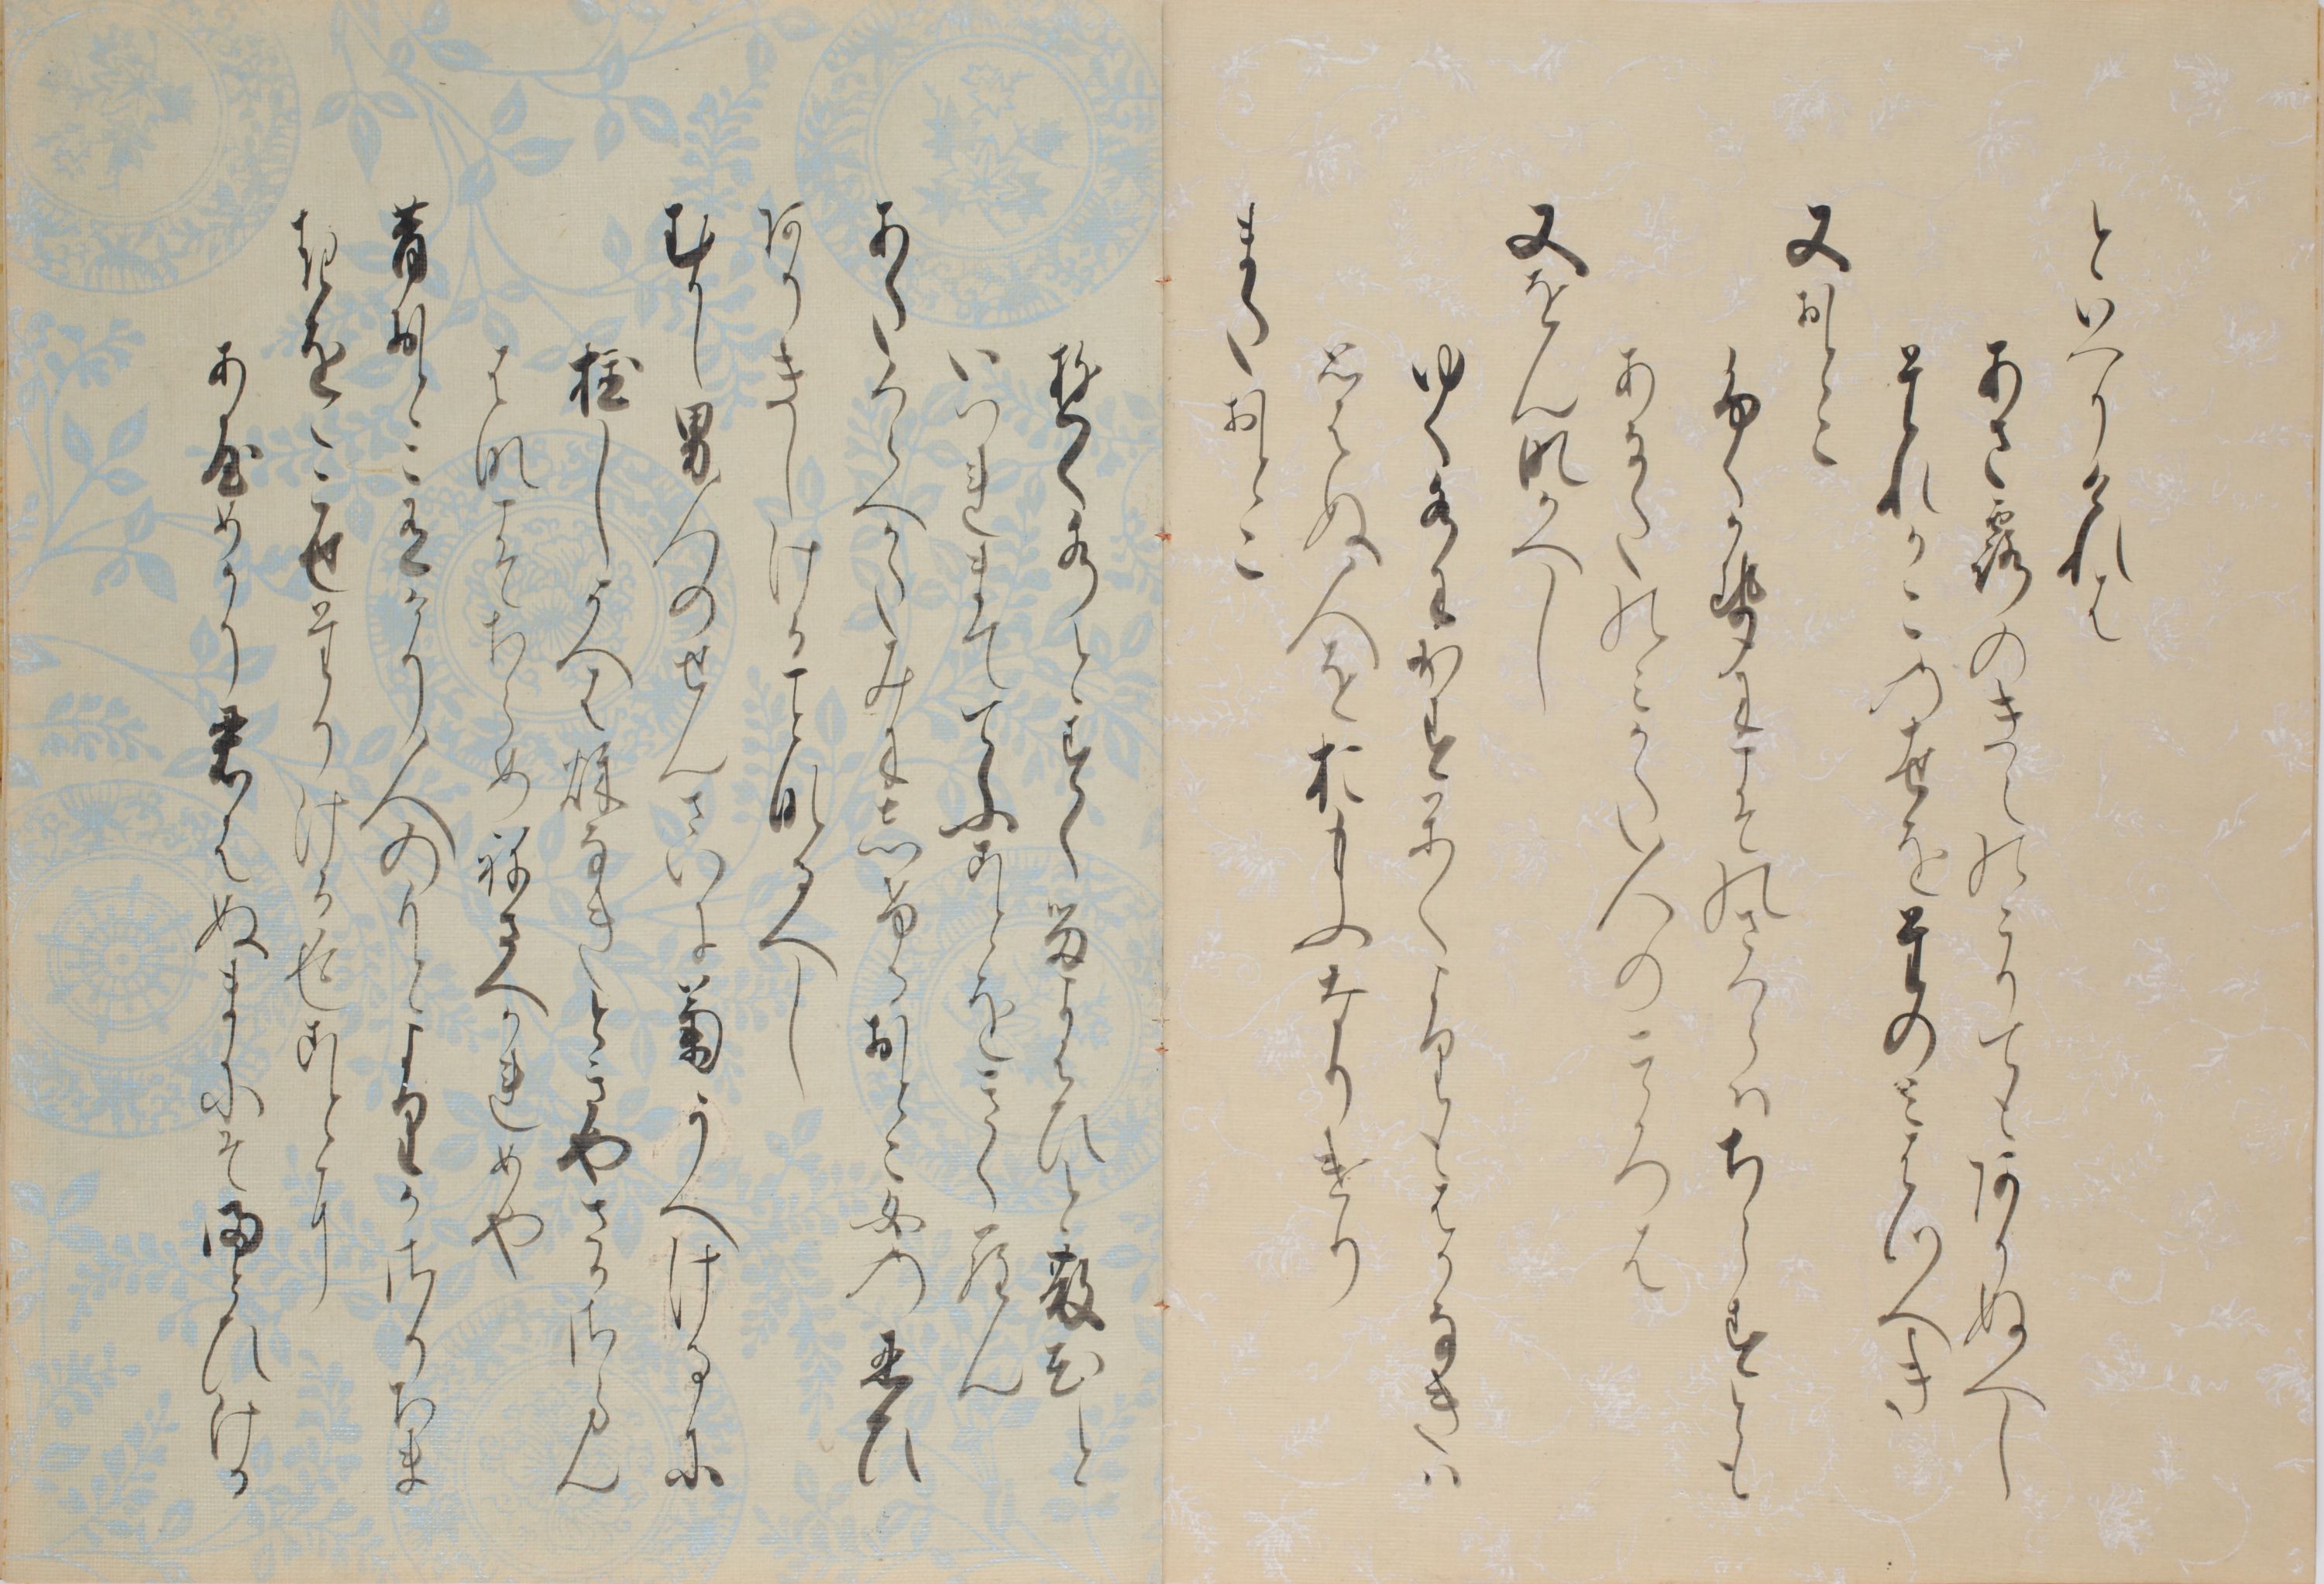 といへりけれは
あさ露のきえのこりてもありぬへし
たれかこの世をたのみはつへき
又おとこ
ふく風にこその桜はちらすとも
あなたのみかた人のこゝろは
又をんな返し
ゆく水にかすかくよりもはかなきは
おもはぬ人をおもふなりけり
またおとこ
ゆく水とすくるよはひと散花と
いつれまててふことをきくらん
あたくらへかたみにしけるおとこ女の忍ひ
ありきしけることなるへし
むかし男人のせんさいに菊うへけるに
植しうへは秋なき時やさかさらん
花こそちらめ根さへかれめや
昔おとこありけり人のもとよりかさりちまき
をこせたりける返ことに
あやめかり君はぬまにそまとひける